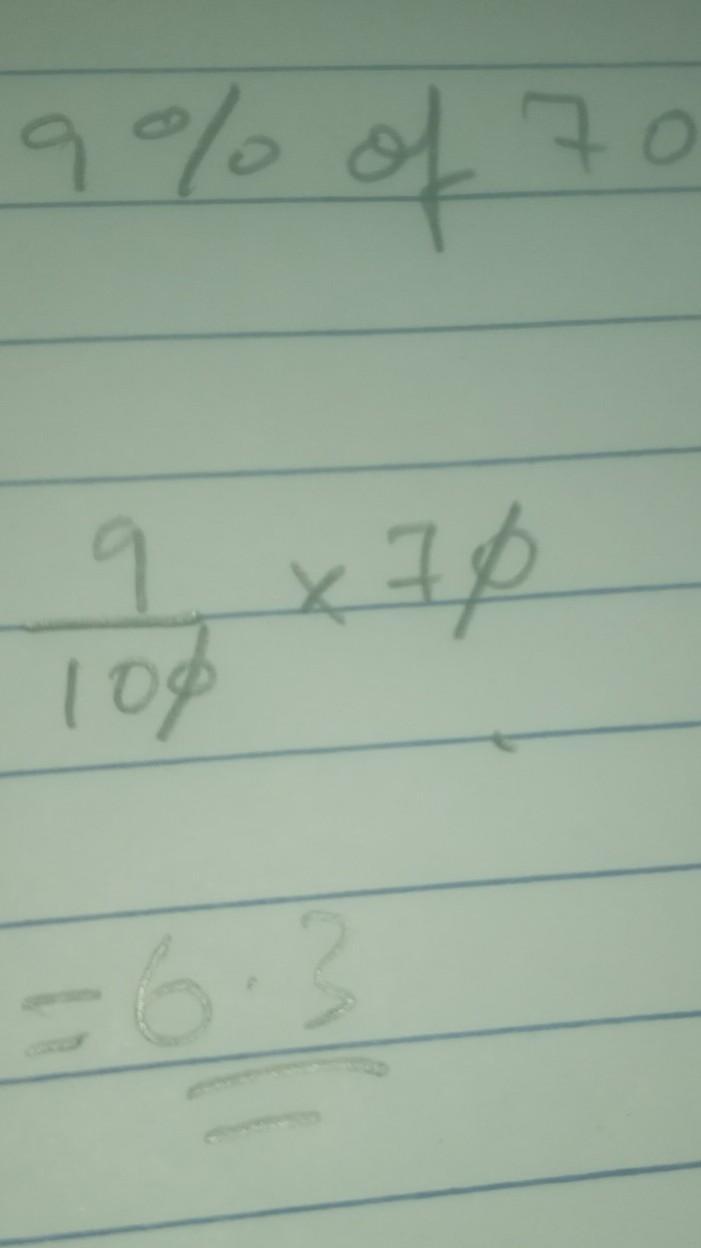 9% of 70
9/100 × 70
= 6.3